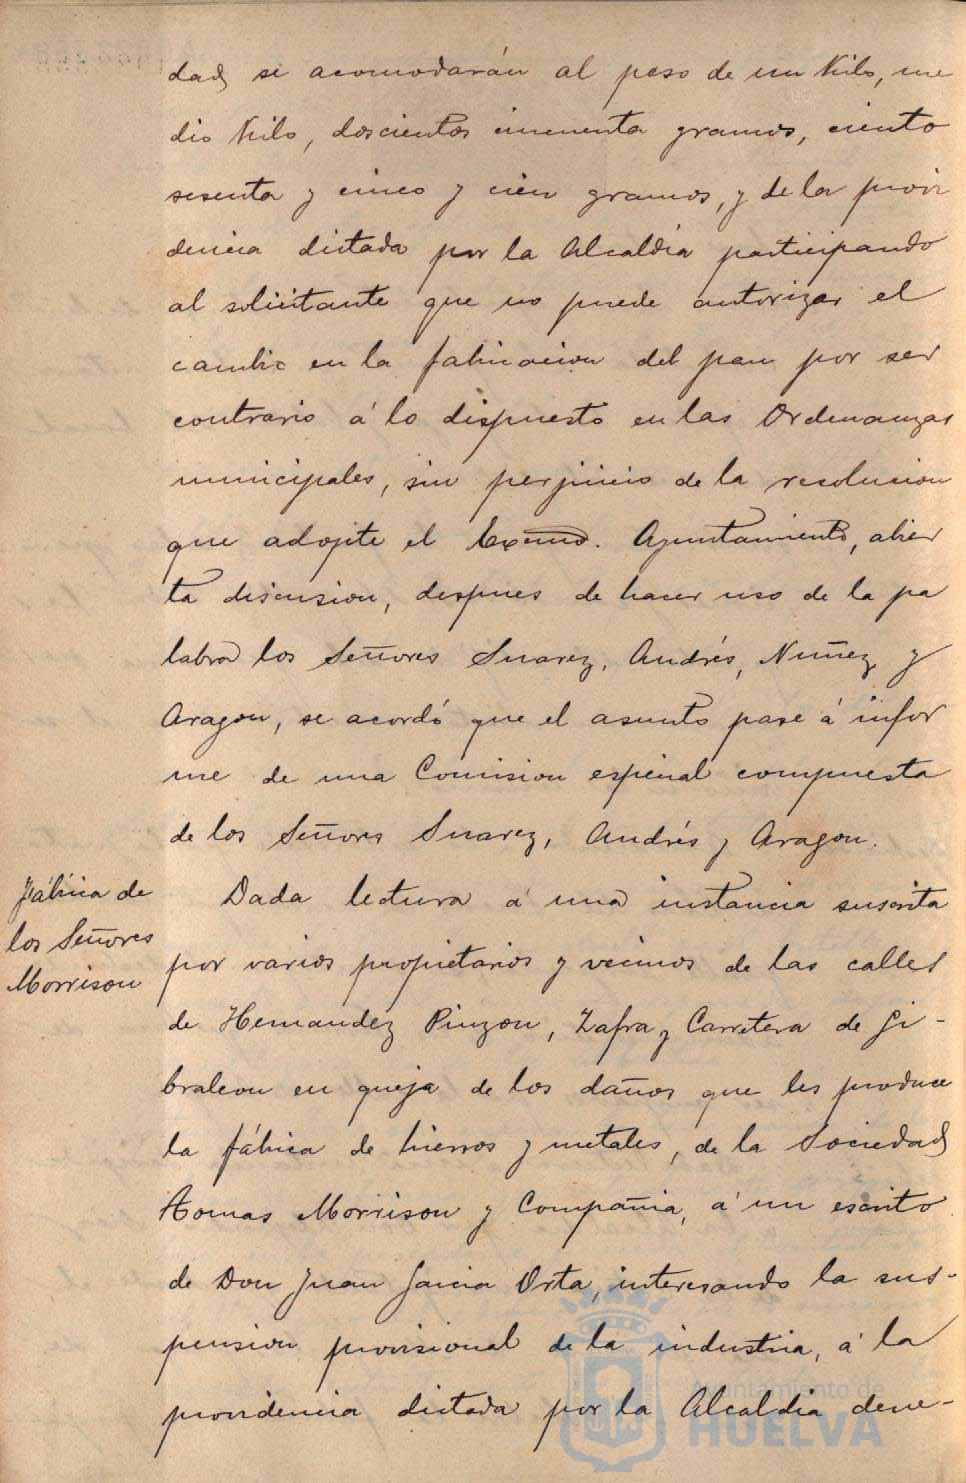 dad se acomodarán al peso de un Kilo, me
dio Kilo, doscientos cincuenta gramos, ciento
sesenta y cinco y cien gramos, y de la provi
dencia dictada por la Alcaldía participando
al solicitante que no puede autorizar el
cambio en la fabricacion del pan por ser
contrario á lo dispuesto en las Ordenanzas
municipales, sin perjuicio de la resolucion
que adopte el Excmo. Ayuntamiento, abier
ta discusion, despues de hacer uso de la pa
labra los Señores Suarez, Andrés, Nuñez y
Aragon, se acordó que el asunto pase á infor
me de una Comision especial compuesta
de los Señores Suarez, Andrés y Aragon.
Fábrica de
los Señores
Morrison
Dada lectura á una instancia suscrita
por varios propietarios y vecinos de las calles
de Hernandez Pinzon, Zafra y Carretera de Gi-
braleon en queja de los daños que les produce
la fábrica de hierros y metales, de la Sociedad
Tomas Morrison y Compañia, á un escrito
de Don Juan Garcia Orta, interesando la sus-
pension provisional de la industria, á la
providencia dictada por la Alcaldia dene-
Ayuntamiento de
HUELVA